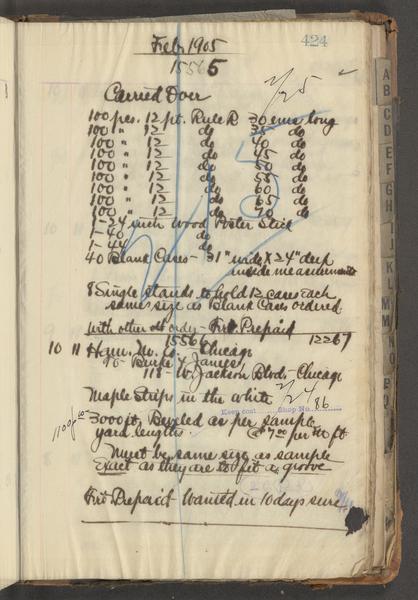 Feb 1905
424
15565
2/25
Carried Over
100 pcs. 12 pt. Rule R 30 ems long
100 " 12 do 35 do
100 " 12 do 40 do
100 " 12 do 45 do
100 " 12 do 50 do
100 " 12 do 55 do
100 " 12 do 60 do
100 " 12 do 65 do
100 " 12 do 70 do
1-24 inch Wood Poster Stick
1-40 do
1-44 do
40 Blank Cases - 31" wide X 24" deep
inside measurements
8 Single stands to hold 12 cases each
same size as Blank Cases ordered
with other order - Frt Prepaid
15566 12267
10 11 Ham. Co. - Chicago
118 - W. Jackson Blvd - Chicago
Maple Strips in the white
2/24
Keep cost Shop No. 86
3000 ft. Beveled as per sample
yard lengths @ 7.00 per M ft
Must be same size as sample
exact as they are to fit a groove
Frt Prepaid - Wanted in 10 days sure
A
B
C
D
E
F
G
H
I
J
K
L
M
N
O
P
Q